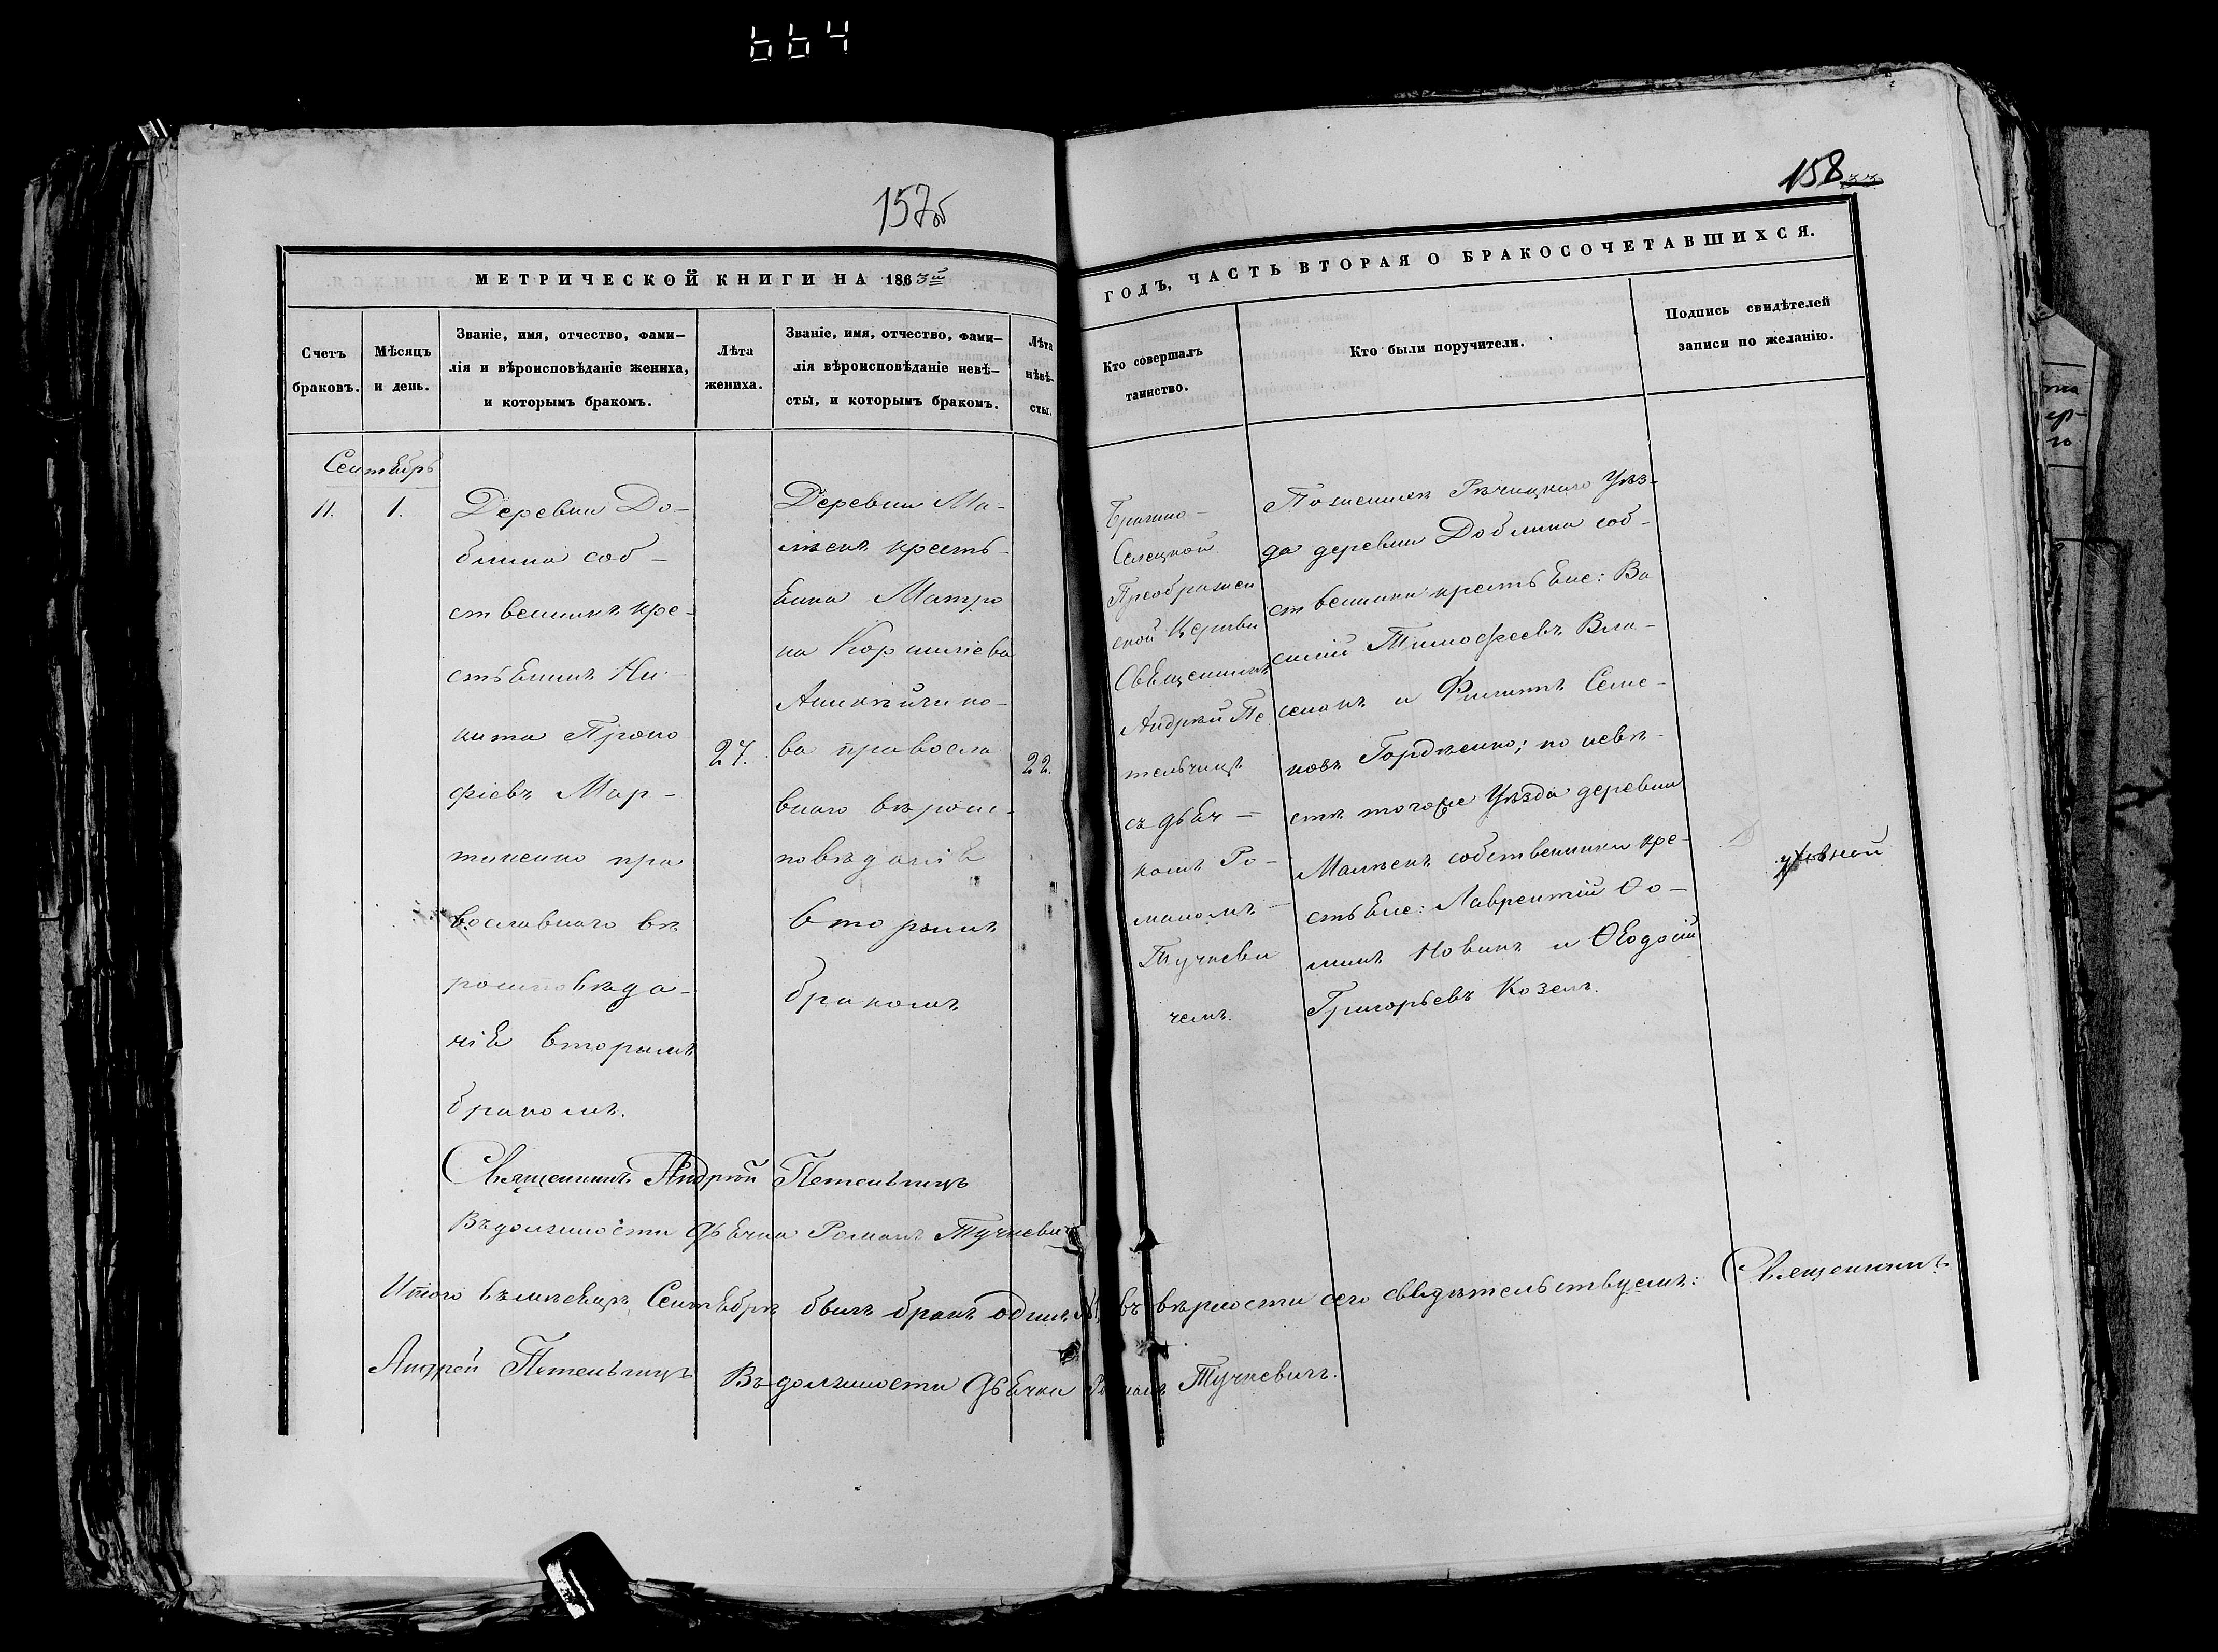 664
157об
158
МЕТРИЧЕСКОЙ КНИГИ НА 1863й
ГОДЪ, ЧАСТЬ ВТОРАЯ О БРАКОСОЧЕТАВШИХСЯ.
Счетъ
браковъ.
Мѣсяцъ
и день.
Званіе, имя, отчество, фами–
лія и вѣроисповѣданіе жениха,
и которымъ бракомъ.
Лѣта
жениха.
Званіе, имя, отчество, фами–
лія вѣроисповѣданіе невѣ–
сты, и которымъ бракомъ.
Лѣта
нѣвѣ–
сты.
Кто совершалъ
таинство.
Кто были поручители.
Подпись свидѣтелей
записи по желанію.
Сентябрь
11.
1.
Деревни До–
блина соб–
ственникъ кре–
стьянинъ Ни
кита Проко
фіевъ Мар–
тиненко пра
вославнаго вѣ
роисповѣда–
нія вторымъ
бракомъ.
27.
Деревни Ма–
лѣекъ кресть–
янка Матро
на Корниліева
ва правосла
внаго вѣроис–
повѣданія
вторымъ
бракомъ
22.
Брагино–
Селецкой
Преображен
ской Церкви
Священникъ
Андрей Пе
тельчицъ
съ дьяч–
комъ Ро–
маномъ
Тучкеви
чемъ.
По женихѣ Рѣчицкаго Уѣз–
да деревни Доблина соб–
ственники крестьяне: Ва
силій Тимофеевъ Вла–
сенокъ и Филиппъ Семе–
новъ Гордѣенко; по невѣ–
стѣ тогоже Уѣзда деревни
Малѣекъ собственники кре–
стьяне: Лаврентій Ѳо–
минъ Новикъ и Ѳеодосій
Григорьевъ Козелъ.
Священникъ Андрей Петельчицъ
Въ должности дьячка Романъ Тучкевичъ
Итого въ мѣсяцѣ Сентябрѣ былъ бракъ одинъ въ вѣрности сего свидѣтельствуемъ: Священникъ
Андрей Петельчицъ Въ должности дьячка Романъ Тучкевичъ.